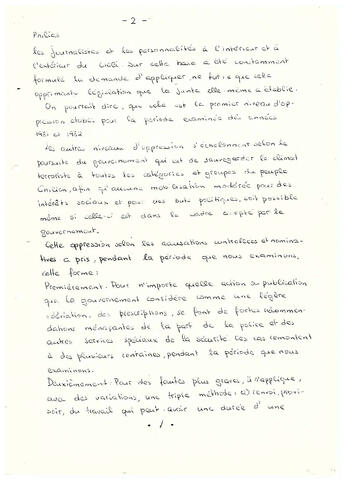 - 2 -
les journalistes et les personnalités à l'intérieur et à
l'extérieur du Chili sur cette base a été constamment
formulé la demande d'appliquer, ne fut-ce que cette
opprimante législation que la junte elle-même a établie.
On pourrait dire, que celle est le premier niveau d'op-
pression établi pour la période examinée des années
1981 et 1982
Les autres niveaux d'oppression s'échelonnent selon la
poursuite du gouvernement qui est de sauvegarder le climat
terroriste à toutes les catégories et groupes du peuple
Chilien, afin qu'aucune mobilisation modérée pour des
intérêts sociaux et pour des buts politiques, soit possible
même si celle-ci est dans le cadre accepté par le
gouvernement.
Cette oppression selon les accusations contrôlées et nomina-
tives a pris, pendant la période que nous examinons,
cette forme:
Premièrement. Pour n'importe quelle action ou publication
que le gouvernement considère comme une légère
violation, des prescriptions, se font de fortes recommen-
dations menaçantes de la part de la police et des
autres services spéciaux de la sécurité. Ces cas remontent
à des plusieurs centaines, pendant la période que nous
examinons.
Deuxièmement: Pour des fautes plus graves, il s'applique,
avec des variations, une triple méthode: a) renvoi, provi-
soir, du travail qui peut avoir une durée d'une